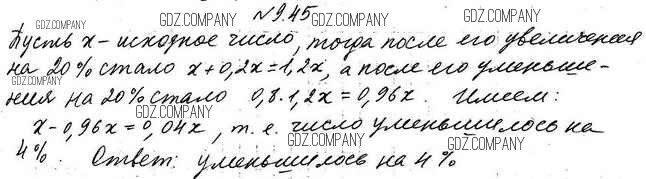 №9.45
Пусть x - исходное число, тогда после его увеличения
на 20% стало x+0,2x=1,2x, а после его уменьше-
ния на 20% стало 0,8·1,2x=0,96x. Имеем:
x-0,96x=0,04x, т.е. число уменьшилось на
4%. Ответ: уменьшилось на 4%
GDZ.COMPANY
GDZ.COMPANY
GDZ.COMPANY
GDZ.COMPANY
GDZ.COMPANY
GDZ.COMPANY
GDZ.COMPANY
GDZ.COMPANY
GDZ.COMPANY